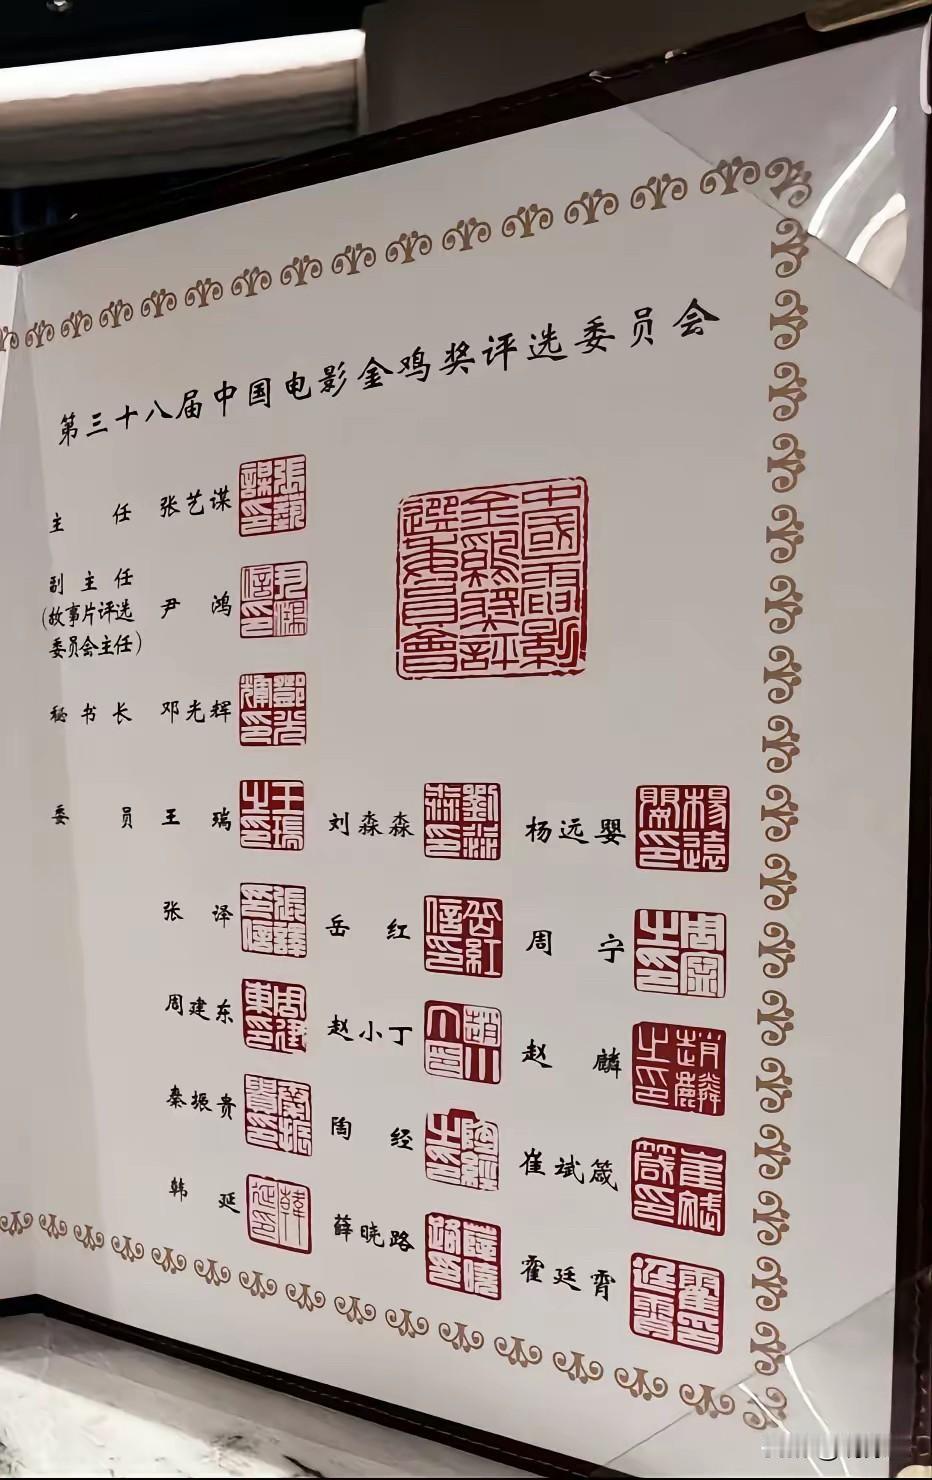 第三十八届中国电影金鸡奖评选委员会
主任 张艺谋
副主任
(故事片评选
委员会主任) 尹鸿
秘书长 邓光辉
中國電影
金鷄獎評
選委員會
委员 王瑞 刘淼淼 杨远婴
张泽 岳红 周宁
周建东 赵小丁 赵麟
秦振贵 陶经 崔斌箴
韩延 薛晓路 霍廷霄